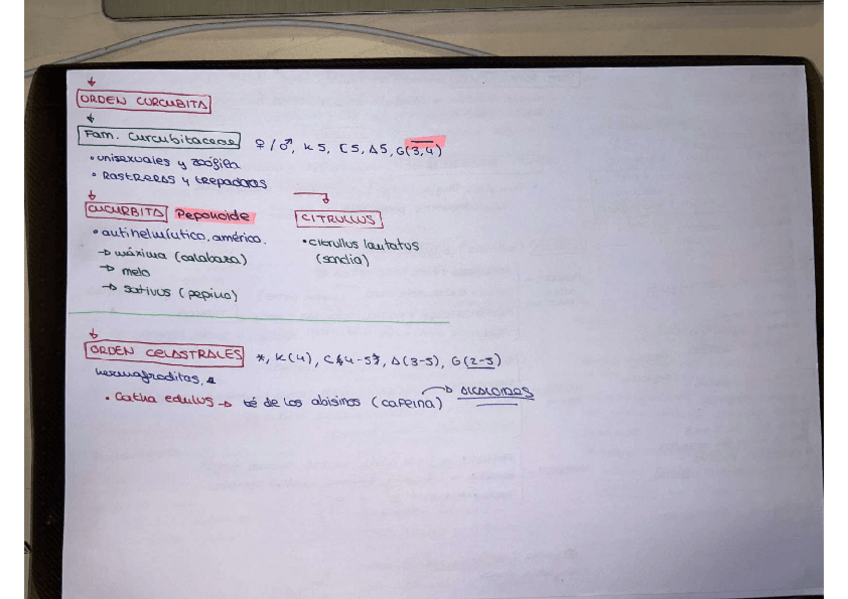 ORDEN CURCUBITA
Fam. Curcubitaceae ♀/♂, K5, C5, A5, G(3,4)
• unisexuales y zoófila
• Rastreras y trepadoras
CUCURBITA Pepónoide
• antihelmíntico, américo.
→ máxima (calabaza)
→ melo
→ sativus (pepino)
CITRULLUS
• citrullus lautatus
(sandía)
ORDEN CELASTRALES *, K(4), C(4-5), A(3-5), G(2-5)
hermafroditas,
• Catha edulus → té de los abisinos (cafeína) → alcaloides